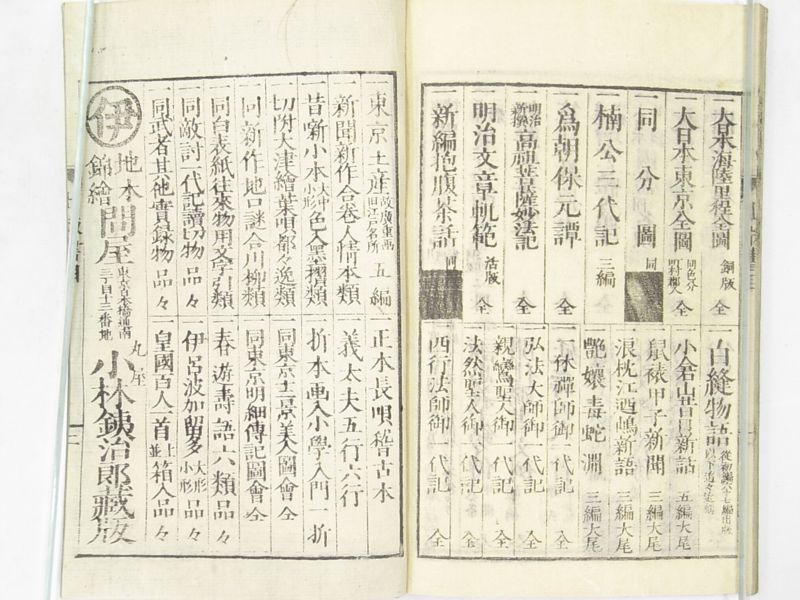 一大日本海陸里程全圖 銅版 全
一大日本東京全圖 同色分 町村櫻入 全
一同分圖 同
一楠公三代記 三編
一爲朝保元譚 全
一明治新撰 高祖菩薩妙法記 全
一明治文章軌範 活版 全
一新編抱腹茶話 同
白縫物語 從初編六十七編出版 以下追々
一小倉山昔日新話 五編大尾
一鼠裱甲子新聞 三編大尾
一浪枕江迺嶋新語 三編大尾
艶孃毒蛇淵 三編大尾
一一休禪師御一代記 全
一弘法大師御一代記 全
一親鸞聖人御一代記 全
一法然聖人御一代記 全
一西行法師御一代記 全
東京土産 故廣重画 旧江戸名所 五編
一新聞新作合巻人情本類
一昔噺小本 大中小形 色入墨摺類
一切附大津繪葉唄都々逸類
一同新作地口謎合川柳類
一同白表紙往來物用文字引類
一同敵討一代記讀切物 品々
一同武者其他實録物 品々
一正本長唄稽古本
一義太夫五行六行
一折本画入小學入門一折
一同東京土京美人圖會 全
一同東京明細傳記圖會 全
一春遊壽語六類品々
一伊呂波加留多 大形小形 品々
一皇國百人一首 上並 箱入品々
伊 地本錦繪 問屋 東京日本橋通南三丁目十三番地
丸屋 小林鉄治郎藏版